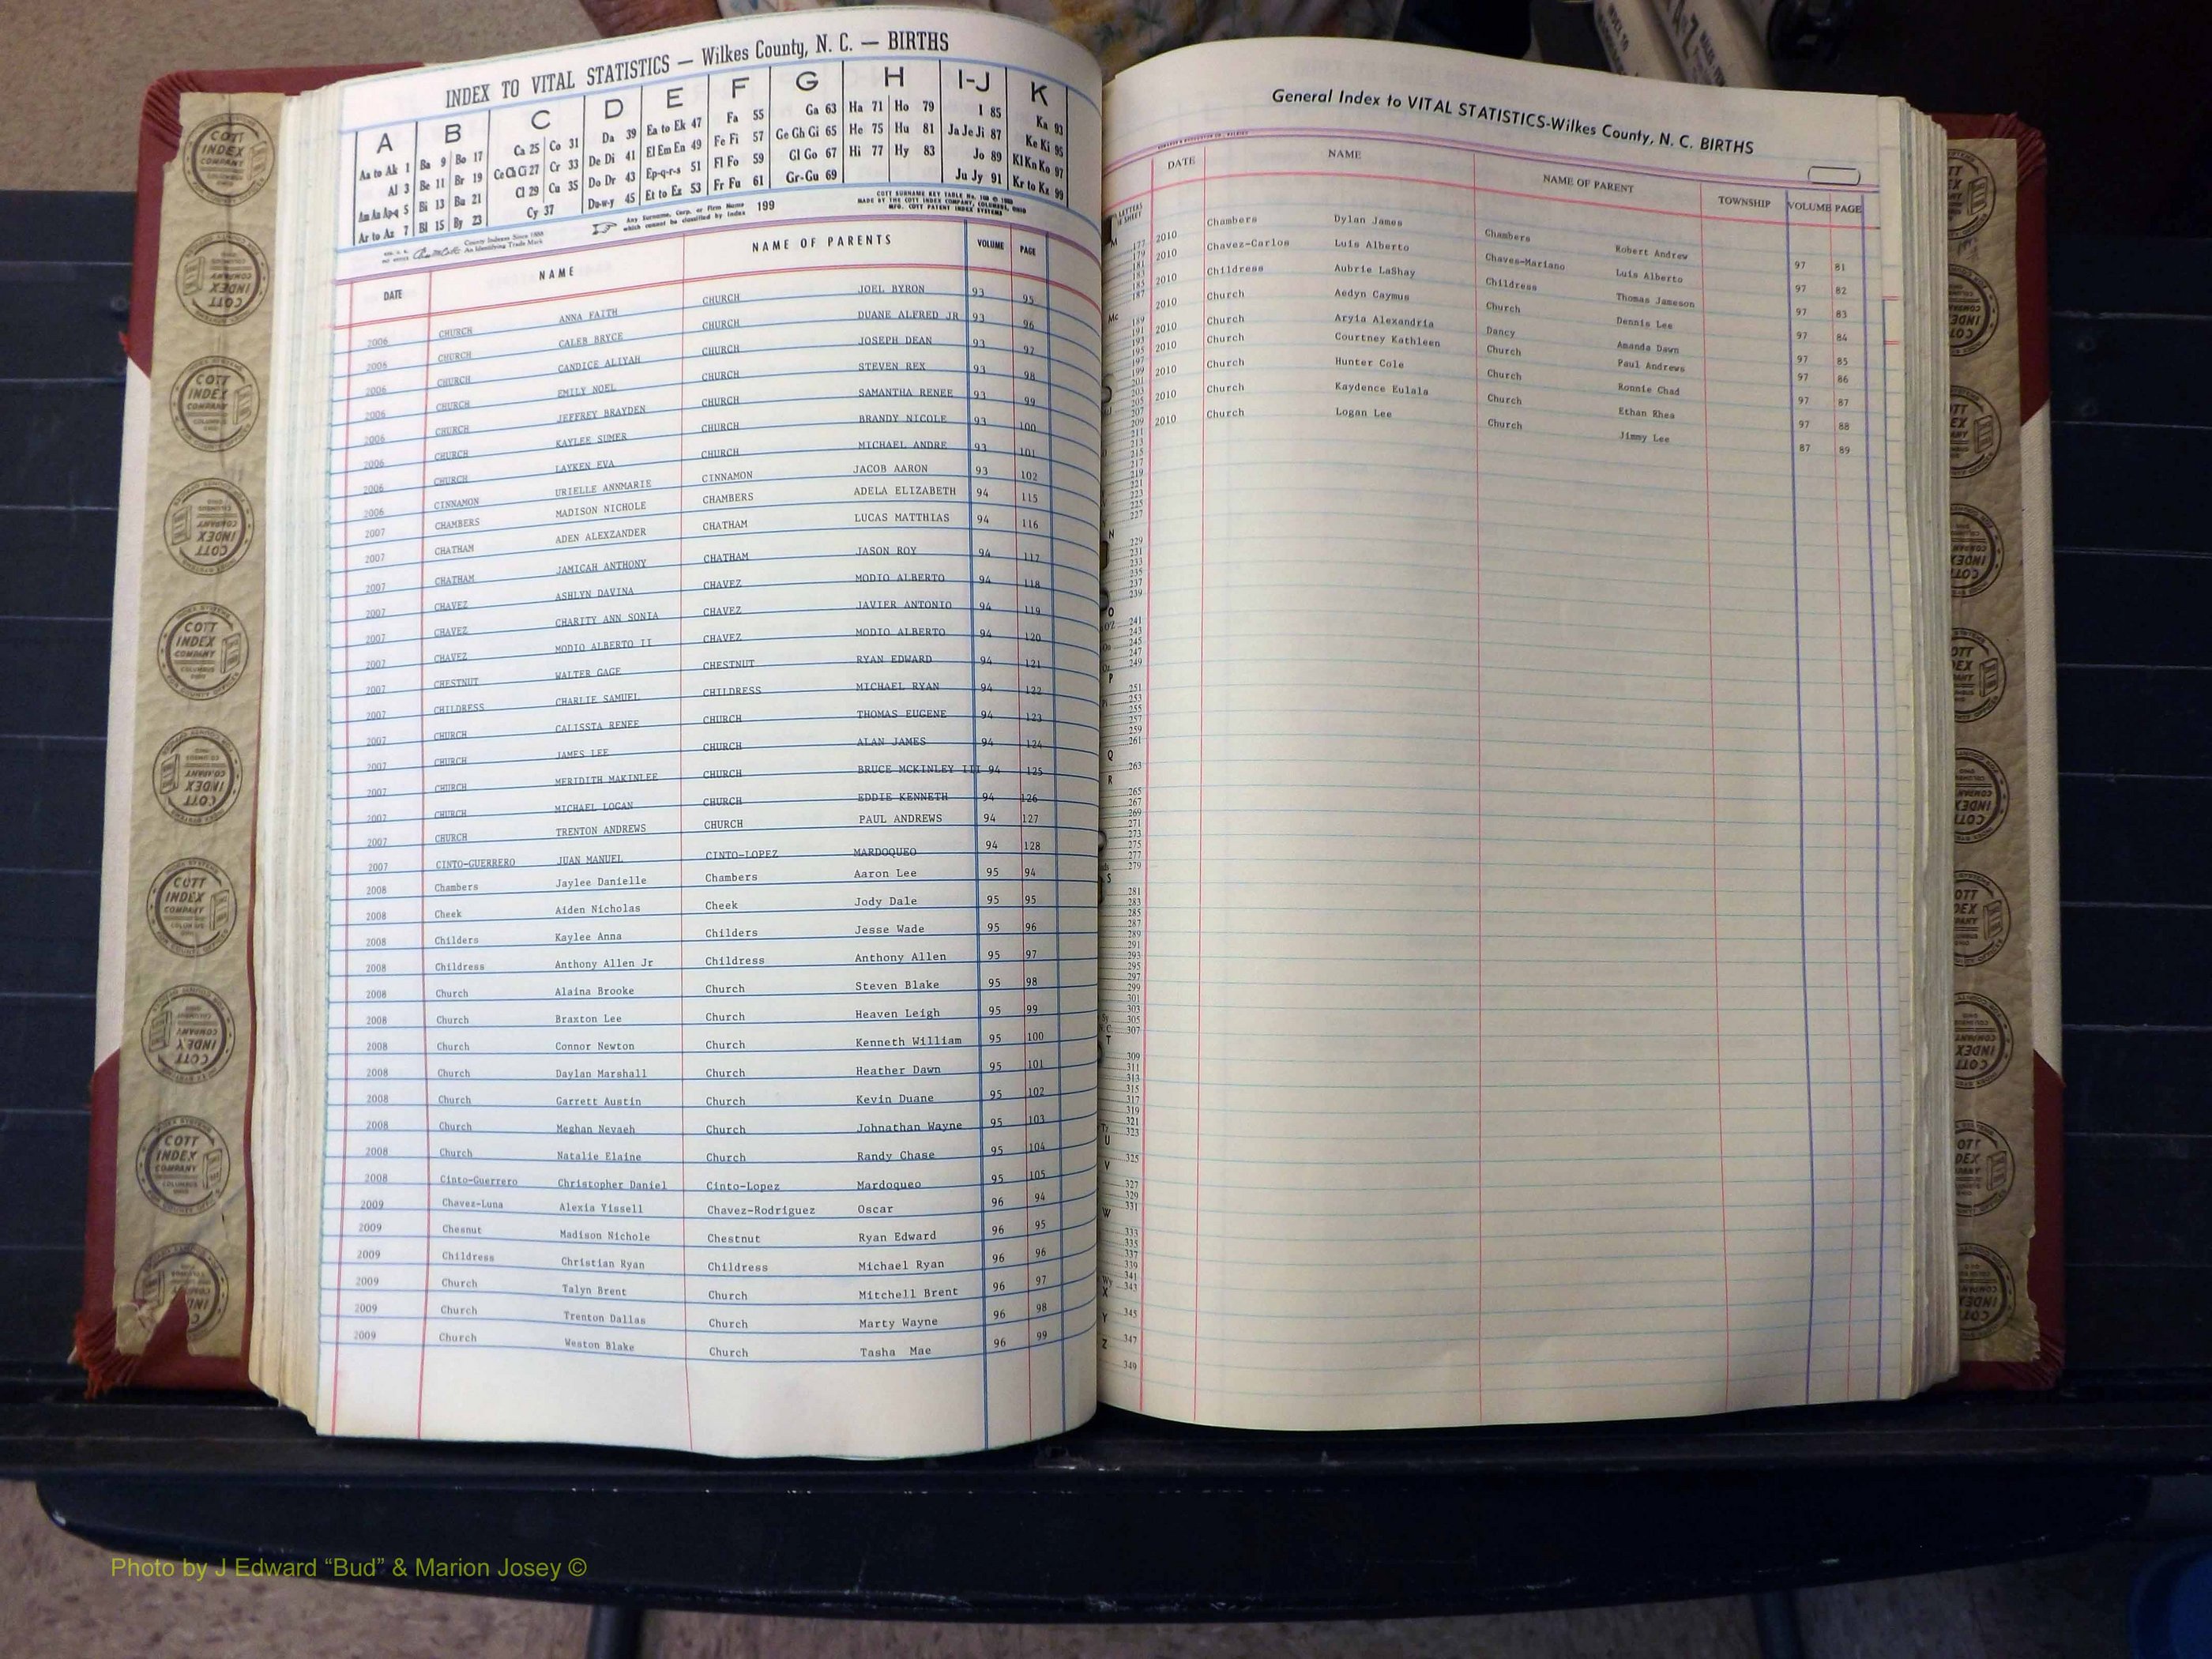 INDEX TO VITAL STATISTICS — Wilkes County, N. C. — BIRTHS
A B C D E F G H I-J K
Aa to Ak 1 Ba 9 Bo 17 Ca 25 Co 31 Da 39 Ea to Ek 47 Fa 55 Ga 63 Ha 71 Ho 79 I 85 Ka 93
Al 3 Be 11 Br 19 Ce Ch Ci 27 Cr 33 De Di 41 El Em En 49 Fe Fi 57 Ge Gh Gi 65 He 75 Hu 81 Ja Je Ji 87 Ke Ki 95
Am An Ap-q 5 Bi 13 Bu 21 Cl 29 Cu 35 Do Dr 43 Ep-q-r-s 51 Fl Fo 59 Gl Go 67 Hi 77 Hy 83 Jo 89 Kl Kn Ko 97
Ar to Az 7 Bl 15 By 23 Cy 37 Du-w-y 45 Et to Ez 53 Fr Fu 61 Gr-Gu 69 Ju Jy 91 Kr to Kz 99
County Indexes Since 1888
An Identifying Trade Mark
Any Surname, Corp. or Firm Name
which cannot be classified by Index 199
COTT SURNAME KEY TABLE
MADE BY THE COTT INDEX COMPANY, COLUMBUS, OHIO
MFG. COTT PATENT INDEX SYSTEMS
DATE NAME NAME OF PARENTS VOLUME PAGE
2006 CHURCH ANNA FAITH CHURCH JOEL BYRON 93 95
2006 CHURCH CALEB BRYCE CHURCH DUANE ALFRED JR 93 96
2006 CHURCH CANDICE ALIYAH CHURCH JOSEPH DEAN 93 97
2006 CHURCH EMILY NOEL CHURCH STEVEN REX 93 98
CHURCH JEFFREY BRAYDEN CHURCH SAMANTHA RENEE 93 99
2006 CHURCH KAYLEE SUMER CHURCH BRANDY NICOLE 93 100
2006 CHURCH LAYKEN EVA CHURCH MICHAEL ANDRE 93 101
2006 CINNAMON URIELLE ANNMARIE CINNAMON JACOB AARON 93 102
2007 CHAMBERS MADISON NICHOLE CHAMBERS ADELA ELIZABETH 94 115
2007 CHATHAM ADEN ALEXZANDER CHATHAM LUCAS MATTHIAS 94 116
2007 CHATHAM JAMICAH ANTHONY CHATHAM JASON ROY 94 117
2007 CHAVEZ ASHLYN DAVINA CHAVEZ MODIO ALBERTO 94 118
2007 CHAVEZ CHARITY ANN SONIA CHAVEZ JAVIER ANTONIO 94 119
2007 CHAVEZ MODIO ALBERTO II CHAVEZ MODIO ALBERTO 94 120
2007 CHESTNUT WALTER GAGE CHESTNUT RYAN EDWARD 94 121
2007 CHILDRESS CHARLIE SAMUEL CHILDRESS MICHAEL RYAN 94 122
2007 CHURCH CALISSTA RENEE CHURCH THOMAS EUGENE 94 123
2007 CHURCH JAMES LEE CHURCH ALAN JAMES 94 124
2007 CHURCH MERIDITH MAKINLEE CHURCH BRUCE MCKINLEY III 94 125
2007 CHURCH MICHAEL LOGAN CHURCH EDDIE KENNETH 94 126
2007 CHURCH TRENTON ANDREWS CHURCH PAUL ANDREWS 94 127
2007 CINTO-GUERRERO JUAN MANUEL CINTO-LOPEZ MARDOQUEO 94 128
2008 Chambers Jaylee Danielle Chambers Aaron Lee 95 94
2008 Cheek Aiden Nicholas Cheek Jody Dale 95 95
2008 Childers Kaylee Anna Childers Jesse Wade 95 96
2008 Childress Anthony Allen Jr Childress Anthony Allen 95 97
2008 Church Alaina Brooke Church Steven Blake 95 98
2008 Church Braxton Lee Church Heaven Leigh 95 99
2008 Church Connor Newton Church Kenneth William 95 100
2008 Church Daylan Marshall Church Heather Dawn 95 101
2008 Church Garrett Austin Church Kevin Duane 95 102
2008 Church Meghan Nevaeh Church Johnathan Wayne 95 103
2008 Church Natalie Elaine Church Randy Chase 95 104
2008 Cinto-Guerrero Christopher Daniel Cinto-Lopez Mardoqueo 95 105
2009 Chavez-Luna Alexia Yissell Chavez-Rodriguez Oscar 96 94
2009 Chesnut Madison Nichole Chestnut Ryan Edward 96 95
2009 Childress Christian Ryan Childress Michael Ryan 96 96
2009 Church Talyn Brent Church Mitchell Brent 96 97
2009 Church Trenton Dallas Church Marty Wayne 96 98
2009 Church Weston Blake Church Tasha Mae 96 99
General Index to VITAL STATISTICS-Wilkes County, N. C. BIRTHS
DATE NAME NAME OF PARENT TOWNSHIP VOLUME PAGE
2010 Chambers Dylan James Chambers Robert Andrew 97 81
2010 Chavez-Carlos Luis Alberto Chaves-Mariano Luis Alberto 97 82
2010 Childress Aubrie LaShay Childress Thomas Jameson 97 83
2010 Church Aedyn Caymus Church Dennis Lee 97 84
2010 Church Aryia Alexandria Dancy Amanda Dawn 97 85
2010 Church Courtney Kathleen Church Paul Andrews 97 86
2010 Church Hunter Cole Church Ronnie Chad 97 87
2010 Church Kaydence Eulala Church Ethan Rhea 97 88
2010 Church Logan Lee Church Jimmy Lee 87 89
COTT INDEX COMPANY
Photo by J Edward “Bud” & Marion Josey ©